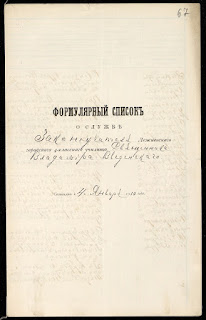 67
ФОРМУЛЯРНЫЙ СПИСОКЪ
О СЛУЖБѢ
Законоучителя
городского училища Священника
Владимира Введенскаго
4 Январь